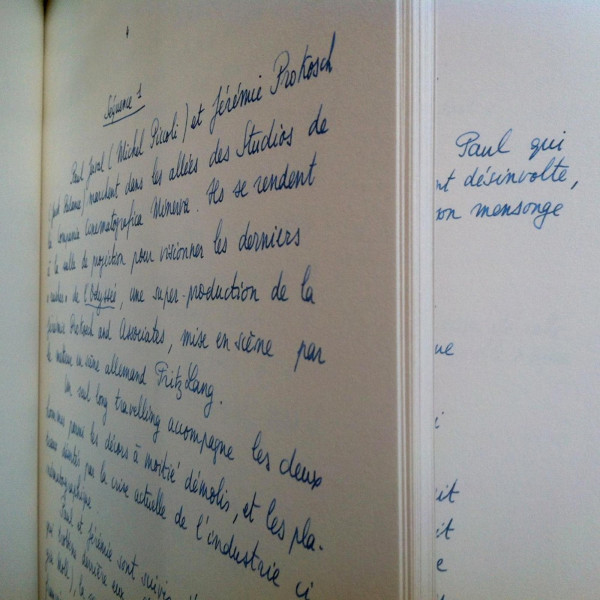 Séquence 1
Paul Javal (Michel Piccoli) et Jérémie Prokosch
(Jack Palance) marchent dans les allées des Studios de
la Compania Cinematografica Minerva. Ils se rendent
à la salle de projection pour visionner les derniers
"rushes" de l'Odyssée, une super-production de la
Jérémie Prokosch and Associates, mise en scène par
le metteur en scène allemand Fritz Lang.
Un seul long travelling accompagne les deux
hommes parmi les décors à moitié démolis, et les pla-
teaux désertés par la crise actuelle de l'industrie ci
nématographique
Paul et Jérémie sont suivis
qui derrière eux
Paul qui
nt désinvolte,
son mensonge
ue
it
it
e